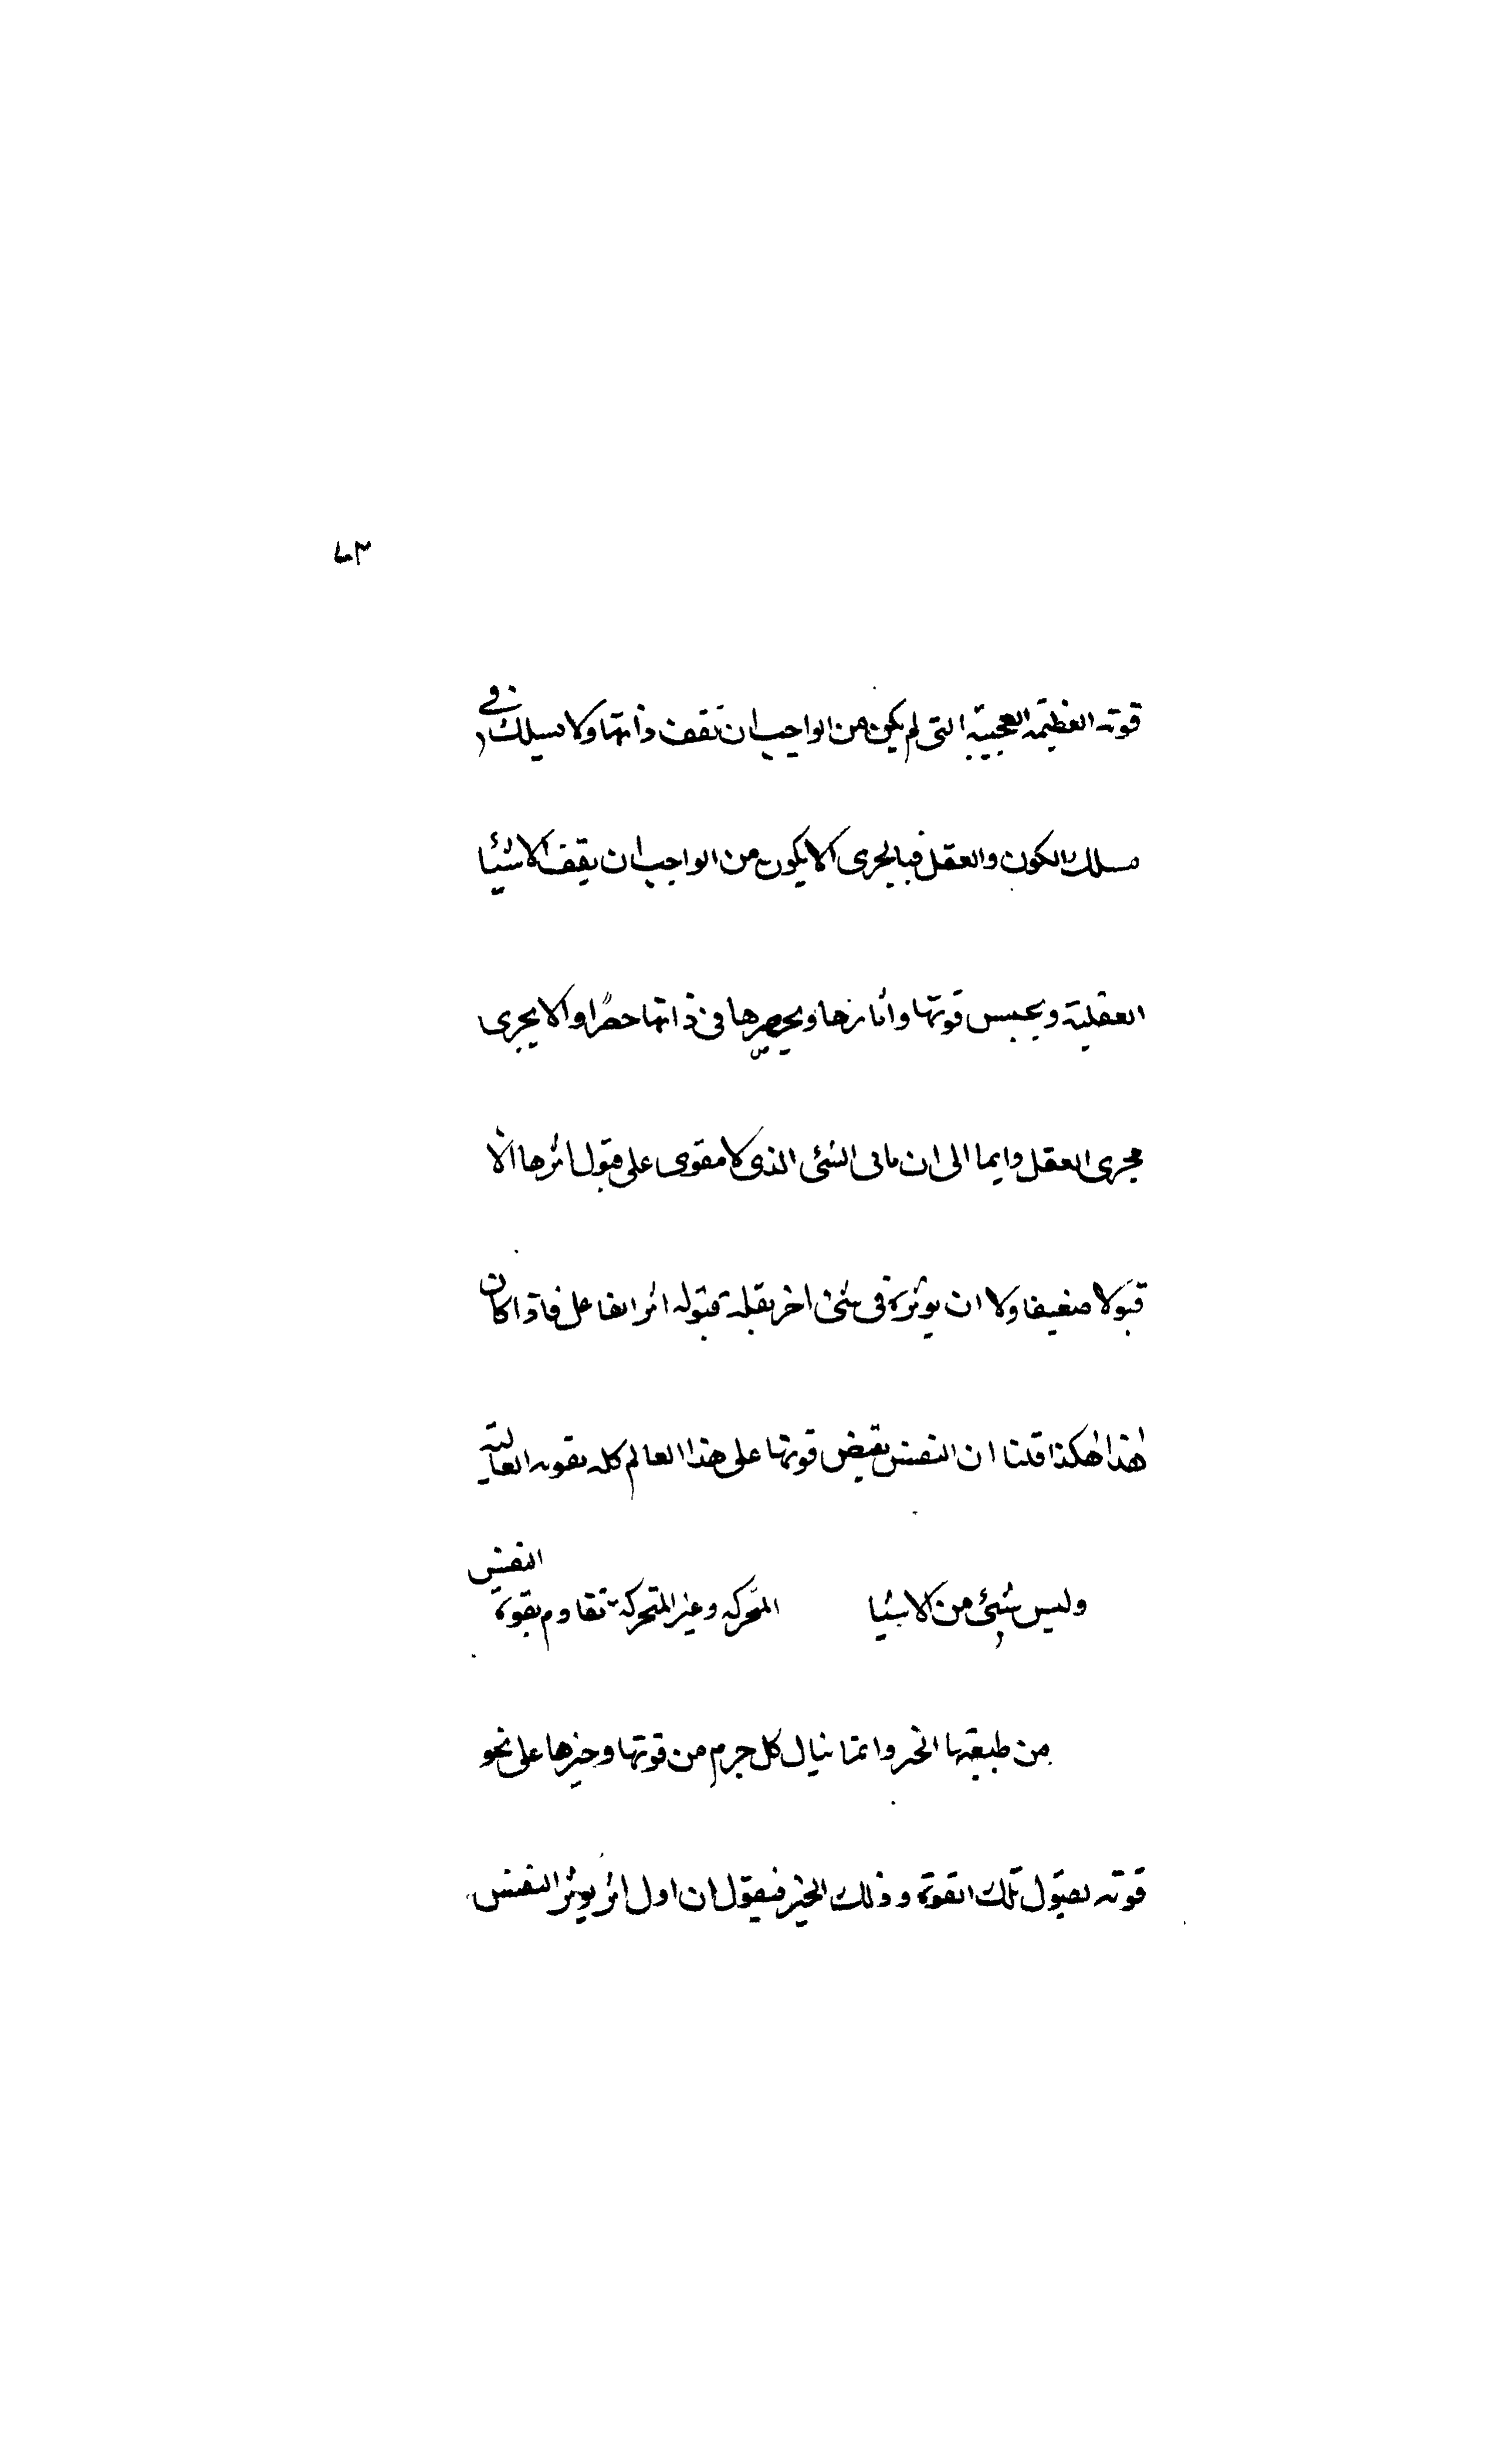 ٧٣
قوته العظيمة العجيبة التى لم يكن من الواجب ان تقف ذاتها ولا تسلك فى
مسلك الكون والعقل فبالحرى الا يكون من الواجب ان يقف الاشيا
العقلية ويحبس قوتها واثارها ويحصرها فى ذاتها حصرًا والا يجرى
مجرى العقل دايما الى ان ياتى الشئ الذى لا يقوى على قبول اثرها الا
قبولا ضعيفا ولا ان يوثره فى شئ اخر لقلة قبوله اثر الفاعل فاذا كان
هذا هكذا قلنا ان النفس تفيض قوتها على هذا العالم كله بقوته العالية
وليس شئ من الاشيا المتحركة وغير المتحركة تقاوم بقوة النفس
من طبيعتها الخير وانما ينال كل جرم من قوتها وخيرها على نحو
قوته لقبول تلك القوة وذلك الخير فيقول ان اول اثر يوثر النفس